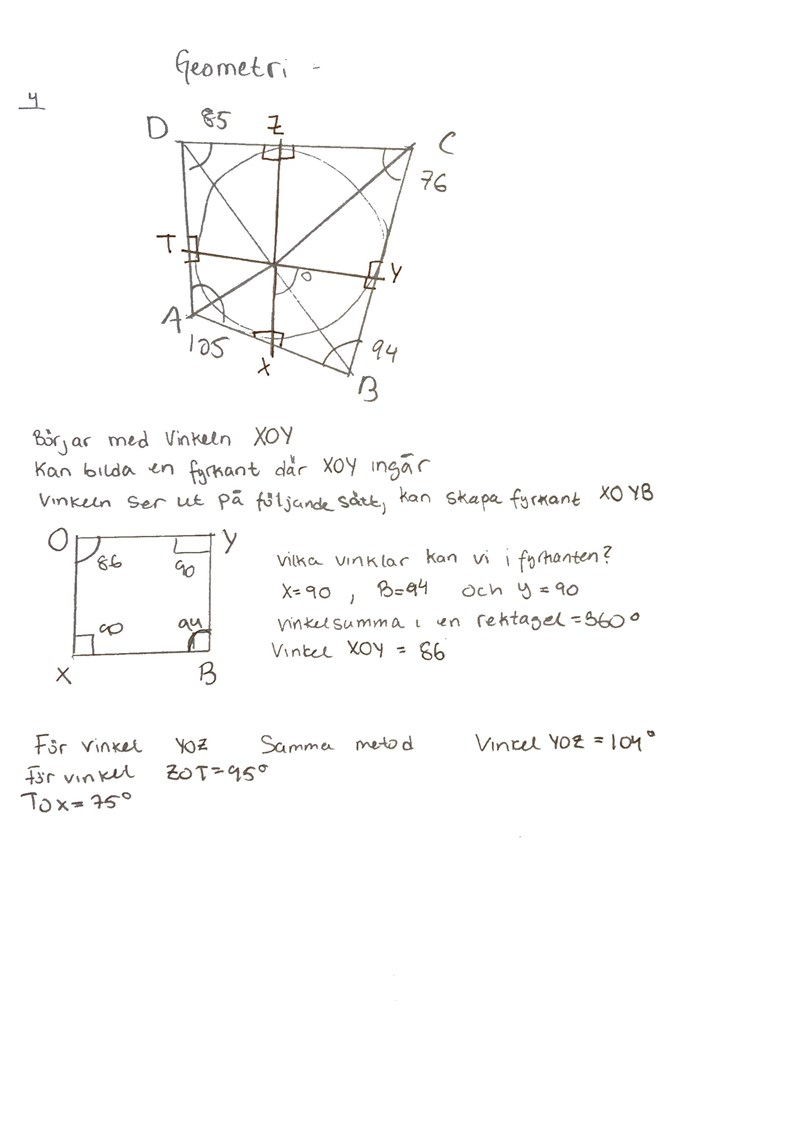 Geometri -
4
D 85 Z C
76
T
O Y
A
105 94
X
B
Börjar med Vinkeln XOY
Kan bilda en fyrkant där XOY ingår
Vinkeln ser ut på följande sätt, kan skapa fyrkant XOYB
O Y
86 90
90 94
X B
Vilka vinklar kan vi i fyrkanten?
X=90 , B=94 och y=90
vinkelsumma i en rektagel=360°
Vinkel XOY = 86
För vinkel YOZ Samma metod Vinkel YOZ = 104°
För vinkel ZOT=95°
TOX=75°